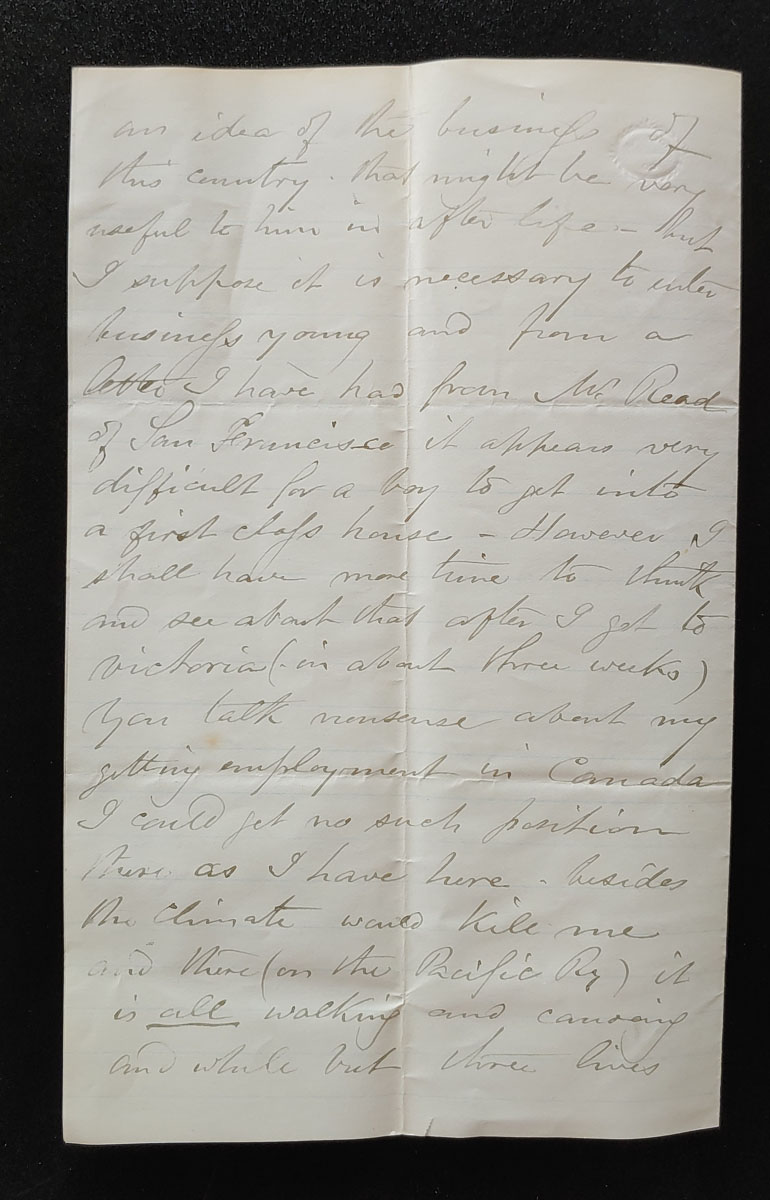 an idea of the business of
this country. that might be very
useful to him in after life - but
I suppose it is necessary to enter
business young and from a
letter I have had from Mr. Read
of San Francisco it appears very
difficult for a boy to get into
a first class house - However I
shall have more time to think
and see about that after I get to
Victoria (in about three weeks)
You talk nonsense about my
getting employment in Canada
I could get no such position
there as I have here - besides
the climate would kill me
and there (on the Pacific Ry) it
is all walking and canoeing
and while but three lives